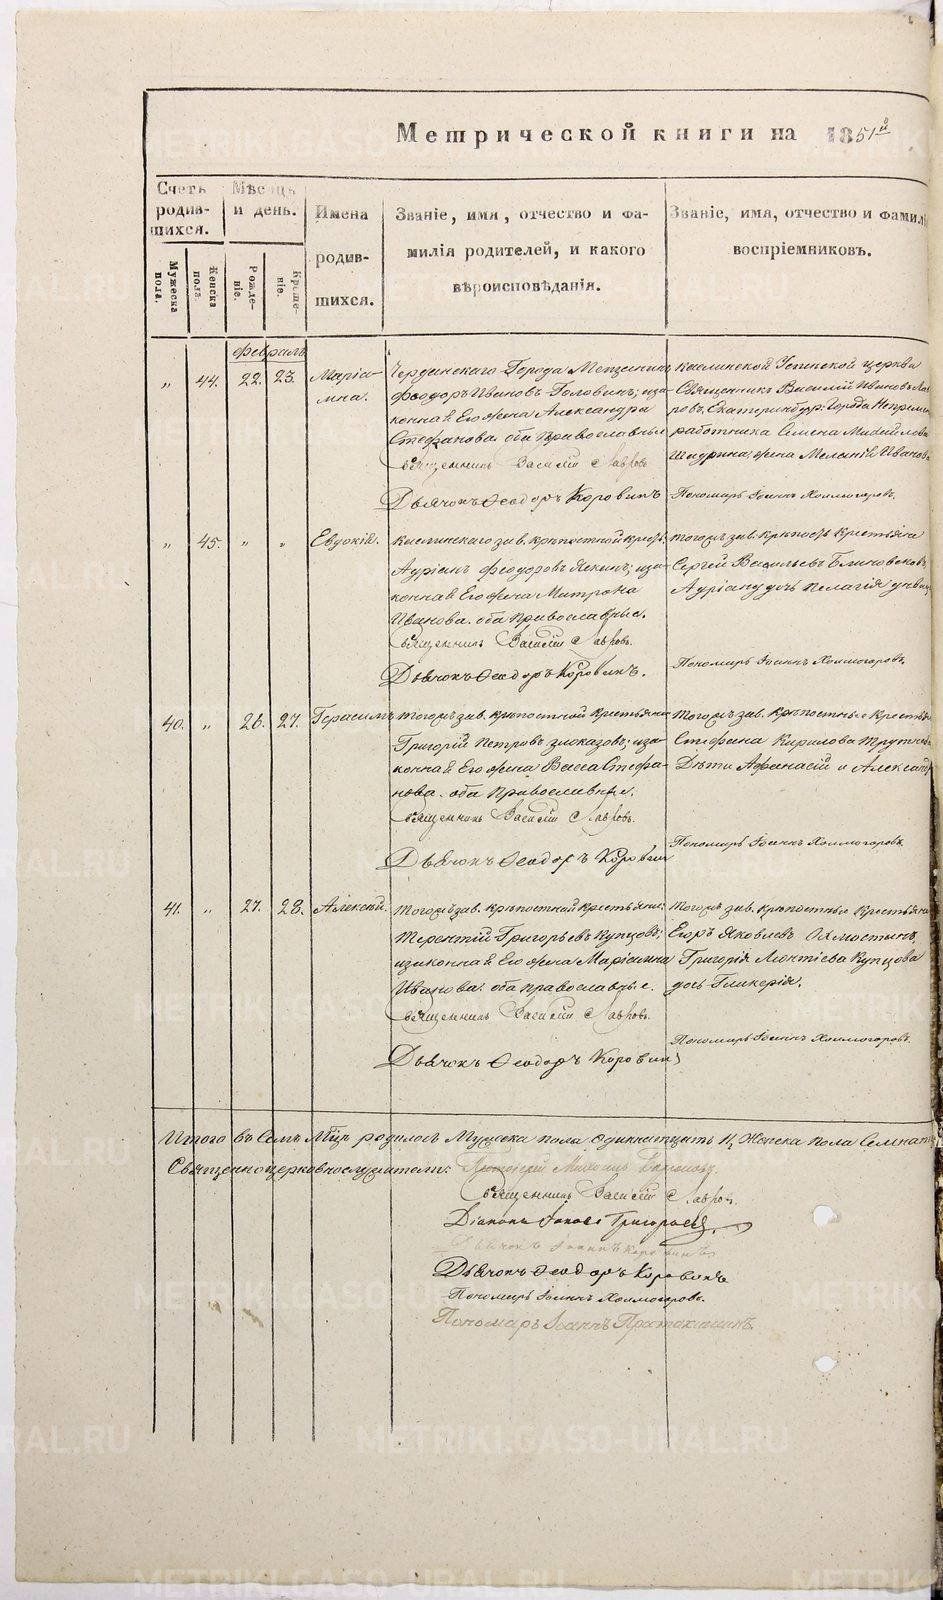 Метрической книги на 1851й
Счетъ родившихся.
Мѣсяцъ и день.
Имена родившихся.
Званіе, имя, отчество и фамилія родителей, и какого вѣроисповѣданія.
Званіе, имя, отчество и фамилі
воспріемниковъ.
Мужеска пола.
Женска пола.
Рожденіе.
Крещеніе.
февраль
„ 44. 22. 23. Маріамна.
Чердынскаго Города Мещанинъ
Феодоръ Ивановъ Головинъ; иза-
конная Его жена Александра
Стефанова оба православные
священникъ Василій Лавровъ
Дьячокъ Феодоръ Коровинъ
Каслинской Успенской церкви
Священникъ Василій Ивановъ Лав
ровъ, Екатеринбур: Города
работника Семена Михайлова
жена Меланія Иванов
Пономарь Іоаннъ Холмогоровъ
„ 45. „ „ Евдокія.
Каслинскаго зав. крѣпостной крест:
Адріанъ Феодоровъ; иза-
конная Его жена Матрона
Иванова. оба православные.
священникъ Василій Лавровъ.
Дьячокъ Феодоръ Коровинъ.
тогожъ зав. крѣпост. крестьяне
Сергей Васильевъ Блиновсковъ
дочь Пелагія
Пономарь Іоаннъ Холмогоровъ.
40. „ 26. 27. Герасимъ
тогожъ зав. крѣпостной крестьянинъ
Григорій Петровъ Злоказовъ; иза-
конная Его жена Васса Стефа-
нова. оба православные.
священникъ Василій Лавровъ.
Дьячокъ Феодоръ Коровинъ
тогожъ зав. крѣпостные крестьян
Стефана Кирилова
Дѣти Афанасій и Александр
Пономарь Іоаннъ Холмогоровъ
41. „ 27. 28. Алексѣй.
тогожъ зав. крѣпостной крестьянин:
Терентій Григорьевъ Купцовъ;
изаконная Его жена Маріамна
Иванова. оба православные.
священникъ Василій Лавровъ.
Дьячокъ Феодоръ Коровинъ
тогожъ зав. крѣпостные крестьяне
Егоръ Яковлевъ
Григорія Леонтіева Купцова
дочь Гликерія.
Пономарь Іоаннъ Холмогоровъ.
Итого въ Семъ Мцѣ родилось Мужеска пола одиннатцать и Женска пола Семнатц
Священноцерковнослужители: Протоіерей Михаилъ
священникъ Василій Лавров
Діаконъ Іаковъ Григорьевъ
Дьячокъ Іоаннъ Коровинъ
Дьячокъ Феодоръ Коровинъ
Пономарь Іоаннъ Холмогоровъ.
Пономарь Іоаннъ
METRIKI.GASO-URAL.RU